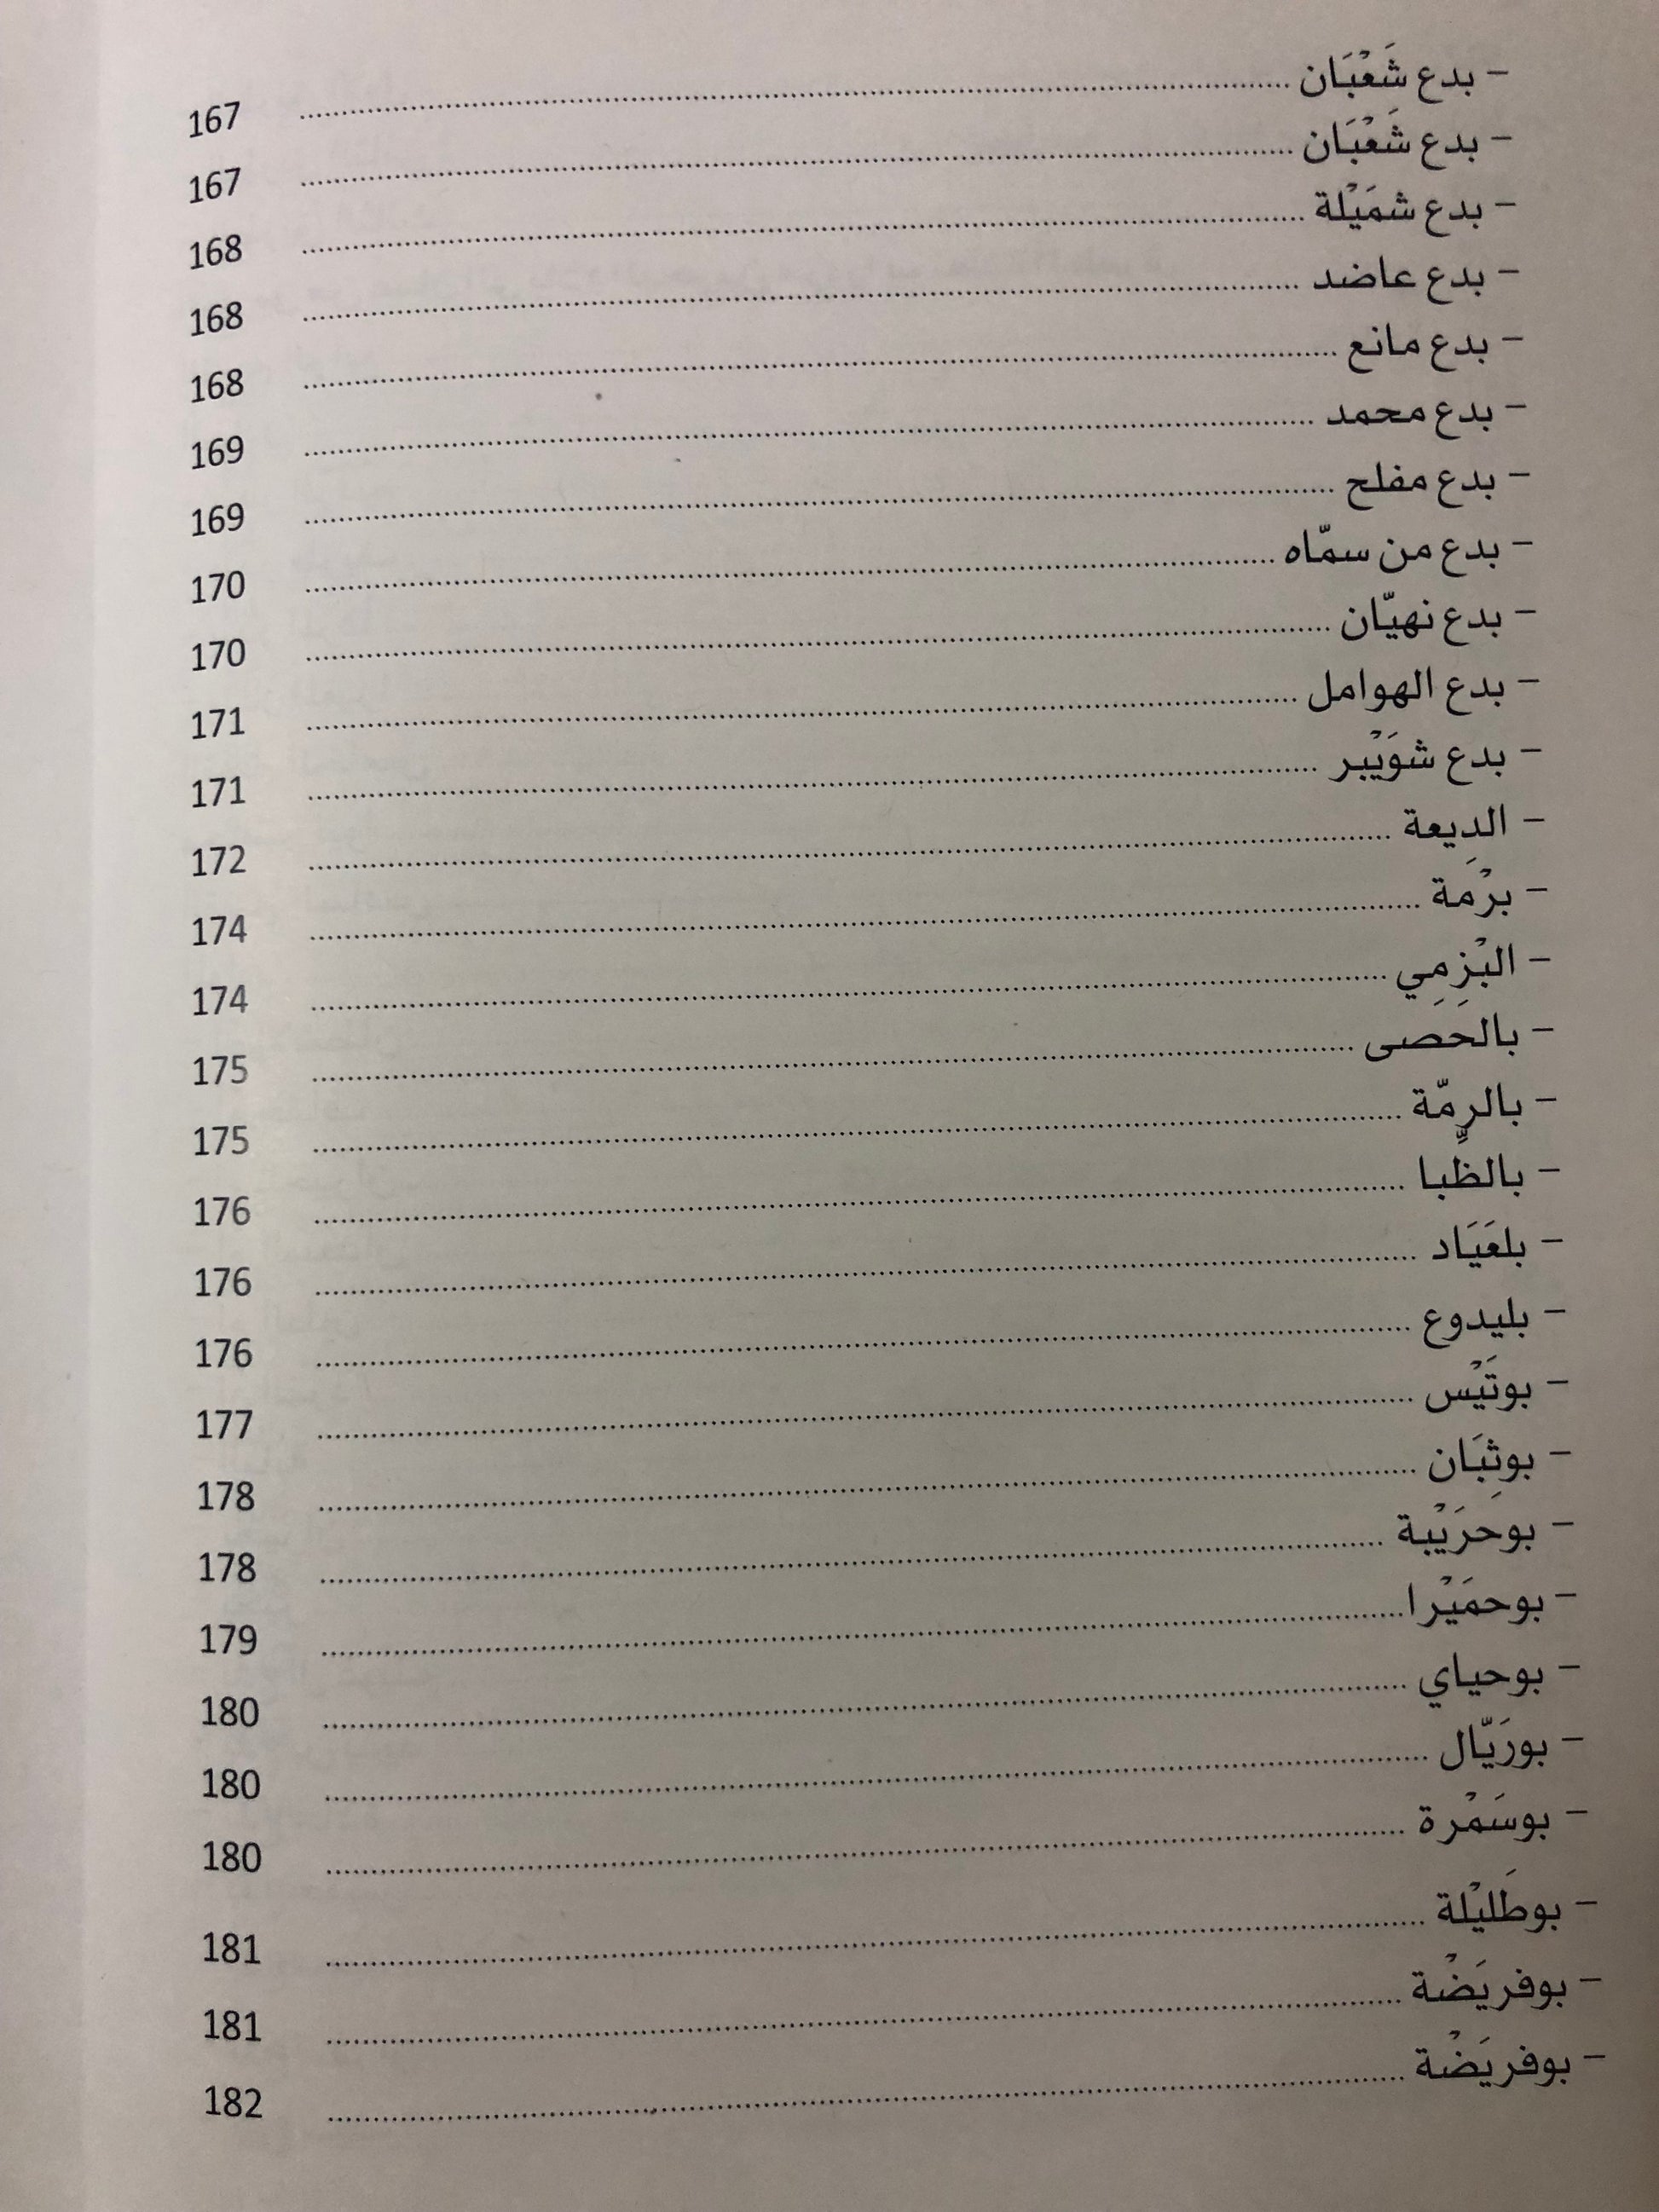 - بدع شَعْبَان ........ 167
- بدع شَعْبَان ........ 167
- بدع شمَيْلة ........ 168
- بدع عاضد ........ 168
- بدع مانع ........ 168
- بدع محمد ........ 169
- بدع مفلح ........ 169
- بدع من سمّاه ........ 170
- بدع نهيّان ........ 170
- بدع الهوامل ........ 171
- بدع شوَيْبر ........ 171
- الديعة ........ 172
- برْمَة ........ 174
- البْزِمِي ........ 174
- بالحَصى ........ 175
- بالرِمّة ........ 175
- بالظِّبا ........ 176
- بلعَيَاد ........ 176
- بليدوع ........ 176
- بوتَيْس ........ 177
- بوثِبَان ........ 178
- بوحرَيْبة ........ 178
- بوحمَيْرا ........ 179
- بوحياي ........ 180
- بورَيّال ........ 180
- بوسَمْرة ........ 180
- بوطَليْلة ........ 181
- بوفريَضْة ........ 181
- بوفريَضْة ........ 182